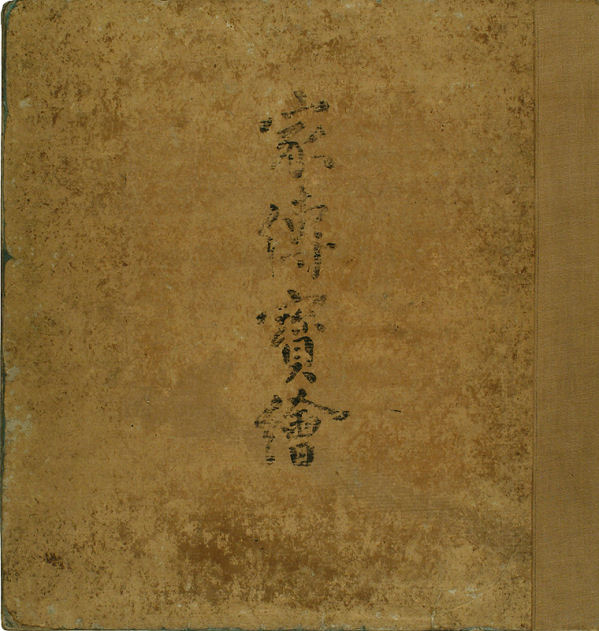 家傳寶繪